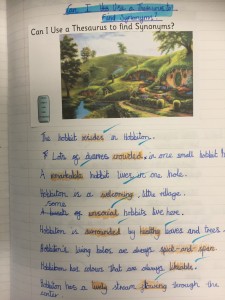 Can I Use a Thesaurus to
find Synonyms?
Can I Use a Thesaurus to find Synonyms?
The hobbit resides in Hobbiton.
Lots of dwarves crowded in one small hobbit
A remarkable hobbit lives in one hole.
Hobbiton is a welcoming, little village.
some
A of unsocial hobbits live here.
Hobbiton is surrounded by healthy leaves and trees
Hobbiton's living holes are always spick-and-span.
Hobbiton has odours that are always likeable.
Hobbiton has a lively stream flowing through the
center